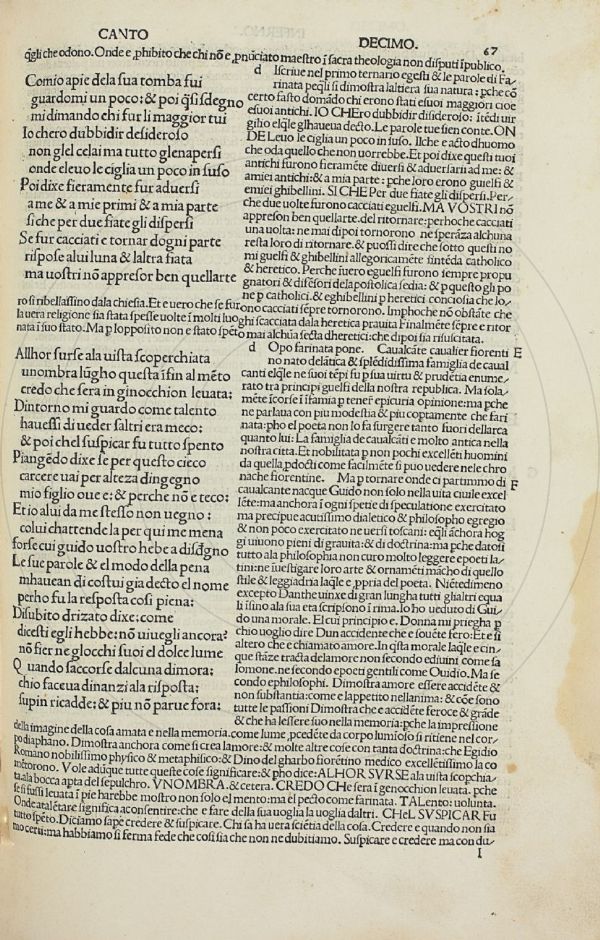 CANTO DECIMO. 67
q̃gli che odono. Onde e ꝓhibito che chi nõ e ꝓnũciato maestro ĩ sacra theologia non disputi ĩ publico.
Comio apie dela sua tomba fui
guardomi un poco: & poi q̃si sdegno
mi dimando chi fur li maggior tui
Io chero dubbidir desideroso
non glel celai ma tutto glenapersi
onde eleuo le ciglia un poco in suso
Poi dixe fieramente fur aduersi
a me & a mie primi & a mia parte
si che per due fiate gli dispersi
Se fur cacciati e tornar dogni parte
rispose alui luna & laltra fiata
ma uostri nõ appresor ben quellarte
d Iscriue nel primo ternario e gesti & le parole di Fa
rinata pe q̃li si dimostra laltiera sua natura: ꝑche cõ
certo fasto domãdo chi erono stati e suoi maggiori cioe
e suoi antichi. IO CHEro dubbidir disideroso: ĩtẽdi uir
gilio el q̃le glhaueua decto. Le parole tue sien conte. ON
DE Leuo le ciglia un poco in suso. Ilche e acto dhuomo
che oda quello che non uorrebbe. Et poi dixe questi tuoi
antichi furono fieramẽte diuersi & aduersarii ad me: &
amiei antichi: & a mia parte: ꝑche loro erono guelfi &
e miei ghibellini. SI CHE Per due fiate gli dispersi. Per-
che due uolte furono cacciati e guelfi. MA VOSTRI nõ
appreson ben quellarte. del ritornare: perhoche cacciati
una uolta: ne mai dipoi tornorono ne sperãza alchuna
resta loro di ritornare. & puossi dire che sotto questi no
mi guelfi & ghibellini allegoricamẽte sintẽda catholico
& heretico. Perche ĩuero e guelfi furono sempre propu
gnatori & difẽsori dela postolica sedia: & ꝑ questo gli po
ne ꝑ catholici. & e ghibellini ꝑ heretici conciosia che lo-
ro si ribellassino dala chiesa. Et e uero che se furono cacciati sẽpre tornorono. Imphoche nõ obstãte che
la uera religione sia stata spesse uolte ĩ molti luoghi scacciata dala heretica prauita Finalmẽte sẽpre e ritor
nata ĩ suo stato. Ma ꝑ lopposito non e stato spẽto mai alchũa secta dheretici: che dipoi sia risuscitata.
Allhor surse ala uista scoperchiata
unombra lũgho questa ĩfin al mẽto
credo che sera in ginocchion leuata:
Dintorno mi guardo come talento
hauessi di ueder saltri era meco:
& poi chel suspicar fu tutto spento
Piangẽdo dixe se per questo cieco
carcere uai per alteza dingegno
mio figlio oue e: & perche nõ e teco:
Et io alui da me stesso non uegno:
colui chattende la per qui me mena
forse cui guido uostro hebe a disdegno
Le sue parole & el modo della pena
mhauean di costui gia decto el nome
perho fu la resposta cosi piena:
Di subito drizato dixe: come
dicesti egli hebbe: nõ uiuegli ancora?
nõ fier ne glocchi suoi el dolce lume
Quando saccorse dalcuna dimora:
chio faceua dinanzi ala risposta:
supin ricadde: & piu nõ parue fora:
d Opo farinata pone. Caualcãte caualier fiorenti E
no nato delãtica & splẽdidissima famiglia de caual
canti el q̃le ne suoi tẽpi fu ꝑ sua uirtu & prudẽtia enume
rato tra principi guelfi della nostra republica. Ma sola
mẽte ĩcorse ĩ ĩfamia ꝑ tener epicuria opinione: ma ꝑche
ne parlaua con piu modestia & piu coptamente che fari
nata: ꝑho el poeta non lo fa surgere tanto fuori dellarca
quanto lui: La famiglia de caualcãti e molto antica nella
nostra citta. Et nobilitata ꝑ non pochi excellẽti huomini
da quella ꝓdocti come facilmẽte si puo uedere nele chro
nache fiorentine. Ma ꝑ tornare onde ci partimmo di F
caualcante nacque Guido non solo nella uita ciuile excel
lẽte: ma anchora ĩ ogni spetie di speculatione exercitato
ma precipue acutissimo dialetico & philosopho egregio
& non poco exercitato ne uersi toscani: eq̃li ãchora hog
gi uiuono pieni di grauita: & di doctrina: ma ꝑche datosi
tutto ala philosophia non curo molto leggere e poeti la-
tini: ne ĩuestigare loro arte & ornamẽti mãcho di quello
stile & leggiadria laq̃le e ꝓpria del poeta. Niẽtedimeno
excepto Danthe uinxe di gran lungha tutti glhaltri equa
li ĩsino ala sua eta scripsono ĩ rima. Io ho ueduto di Gui
do una morale. El cui principio e. Donna mi priegha ꝑ
chio uoglio dire Dun accidente che souẽte fero: Et e si
altero che e chiamato amore. In q̃sta morale laq̃le e cin-
que stãze tracta delamore non secondo ediuini come sa
lomone. ne secondo epoeti gentili come Ouidio. Ma se
condo ephilosophi. Dimostra amore essere accidẽte &
non substantia: come e lappetito nellanima: & cõe sono
tutte le passioni Dimostra che e accidẽte feroce & grãde
& che ha lessere suo nella memoria: ꝑche la impressione
della imagine della cosa amata e nella memoria. come lume ꝓcedẽte da corpo lumioso si ritiene nel cor-
po diaphano. Dimostra anchora come si crea lamore: & molte altre cose con tanta doctrina: che Egidio
Romano nobilissimo physico & metaphisico: & Dino del gharbo fiorẽtino medico excellẽtissimo la co
mẽtorono. Vole adũque tutte queste cose significare: & pho dice: ALHOR SVRSE ala uista scopchia-
ta: ala bocca apta del sepulchro. VNOMBRA. & cetera. CREDO CHe sera ĩ genocchion leuata. ꝑche
se si fussi leuata ĩ pie harebbe mostro non solo el mento: ma el pecto come farinata. TALento: uolunta.
Onde atalẽtare significa aconsentire: che e fare della sua uoglia la uoglia daltri. CHeL SVSPICAR Fu
tutto spẽto. Diciamo sape credere & suspicare. Chi sa ha uera sciẽtia della cosa. Credere e quando non sia
mo certi: ma habbiamo si ferma fede che cosi sia che non ne dubitiamo. Suspicare e credere ma con du-
I